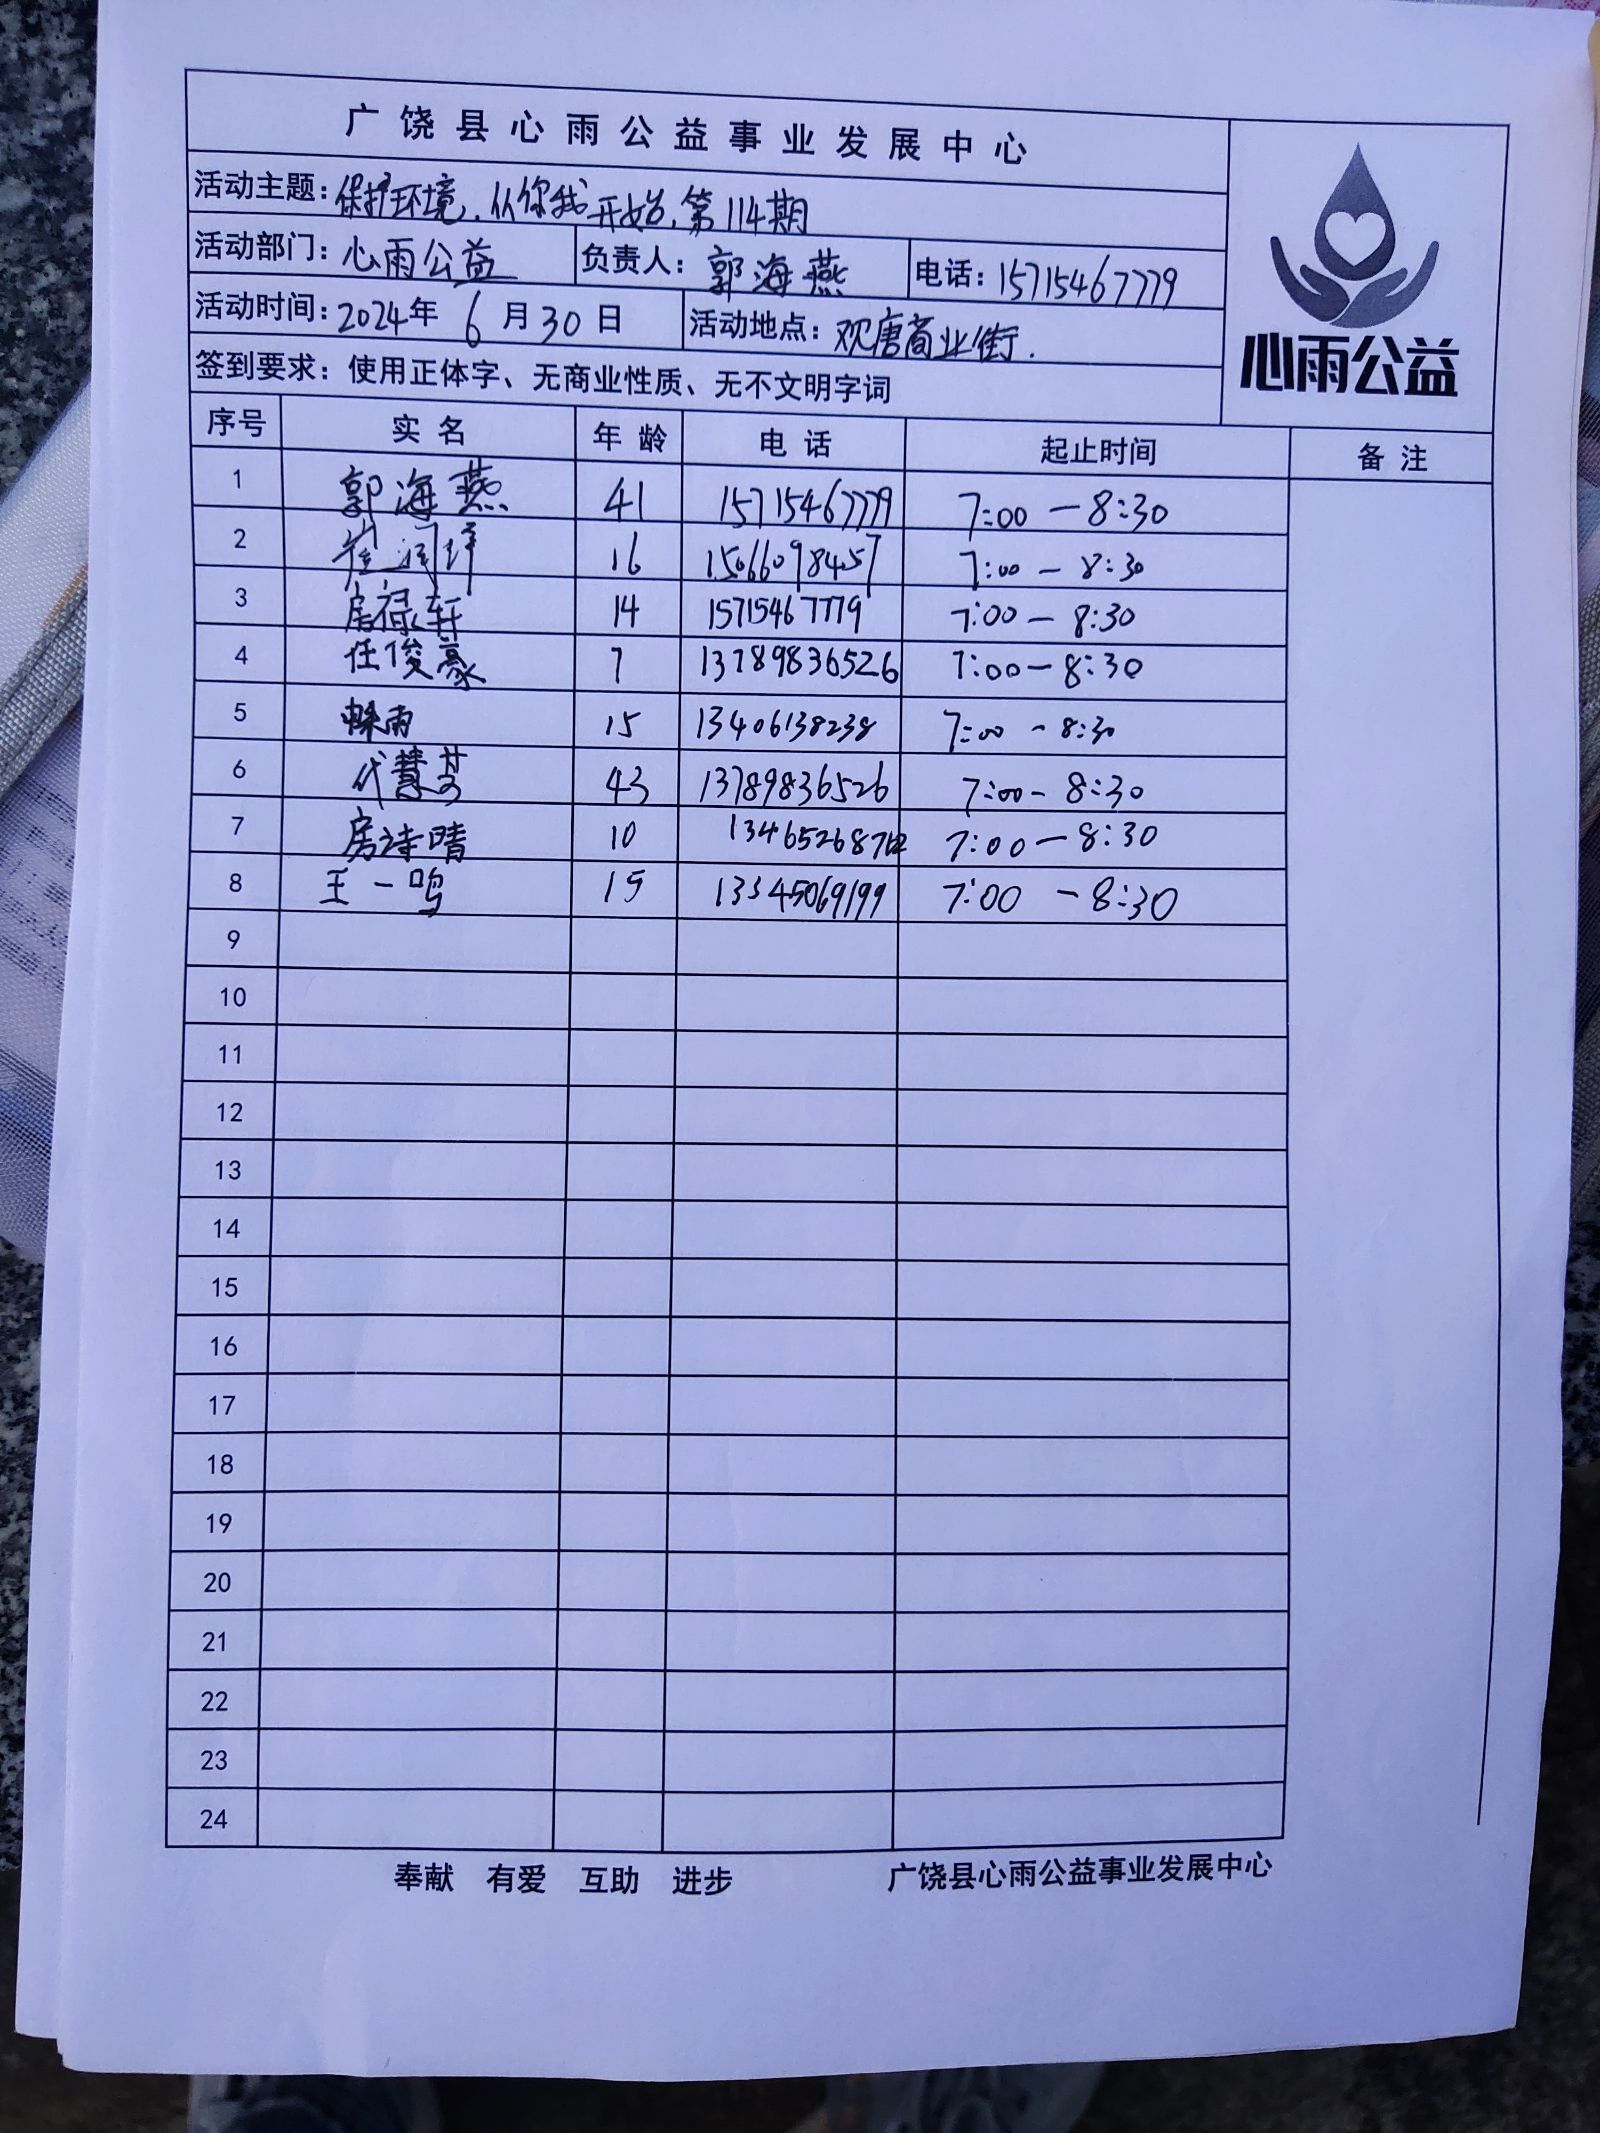 广饶县心雨公益事业发展中心
活动主题：保护环境，从你我开始，第114期
活动部门：心雨公益 负责人：郭海燕 电话：15715467779
活动时间：2024年6月30日 活动地点：观唐商业街.
签到要求：使用正体字、无商业性质、无不文明字词
心雨公益
序号 实名 年龄 电话 起止时间 备注
1 郭海燕 41 15715467779 7:00—8:30
2 崔润 16 15066098457 7:00—8:30
3 房禄轩 14 15715467779 7:00—8:30
4 任俊豪 7 13789836526 7:00—8:30
5 雨 15 13406138238 7:00-8:30
6 代慧芳 43 13789836526 7:00-8:30
7 房诗晴 10 7:00—8:30
8 王一鸣 15 13345069199 7:00—8:30
9
10
11
12
13
14
15
16
17
18
19
20
21
22
23
24
奉献 有爱 互助 进步 广饶县心雨公益事业发展中心